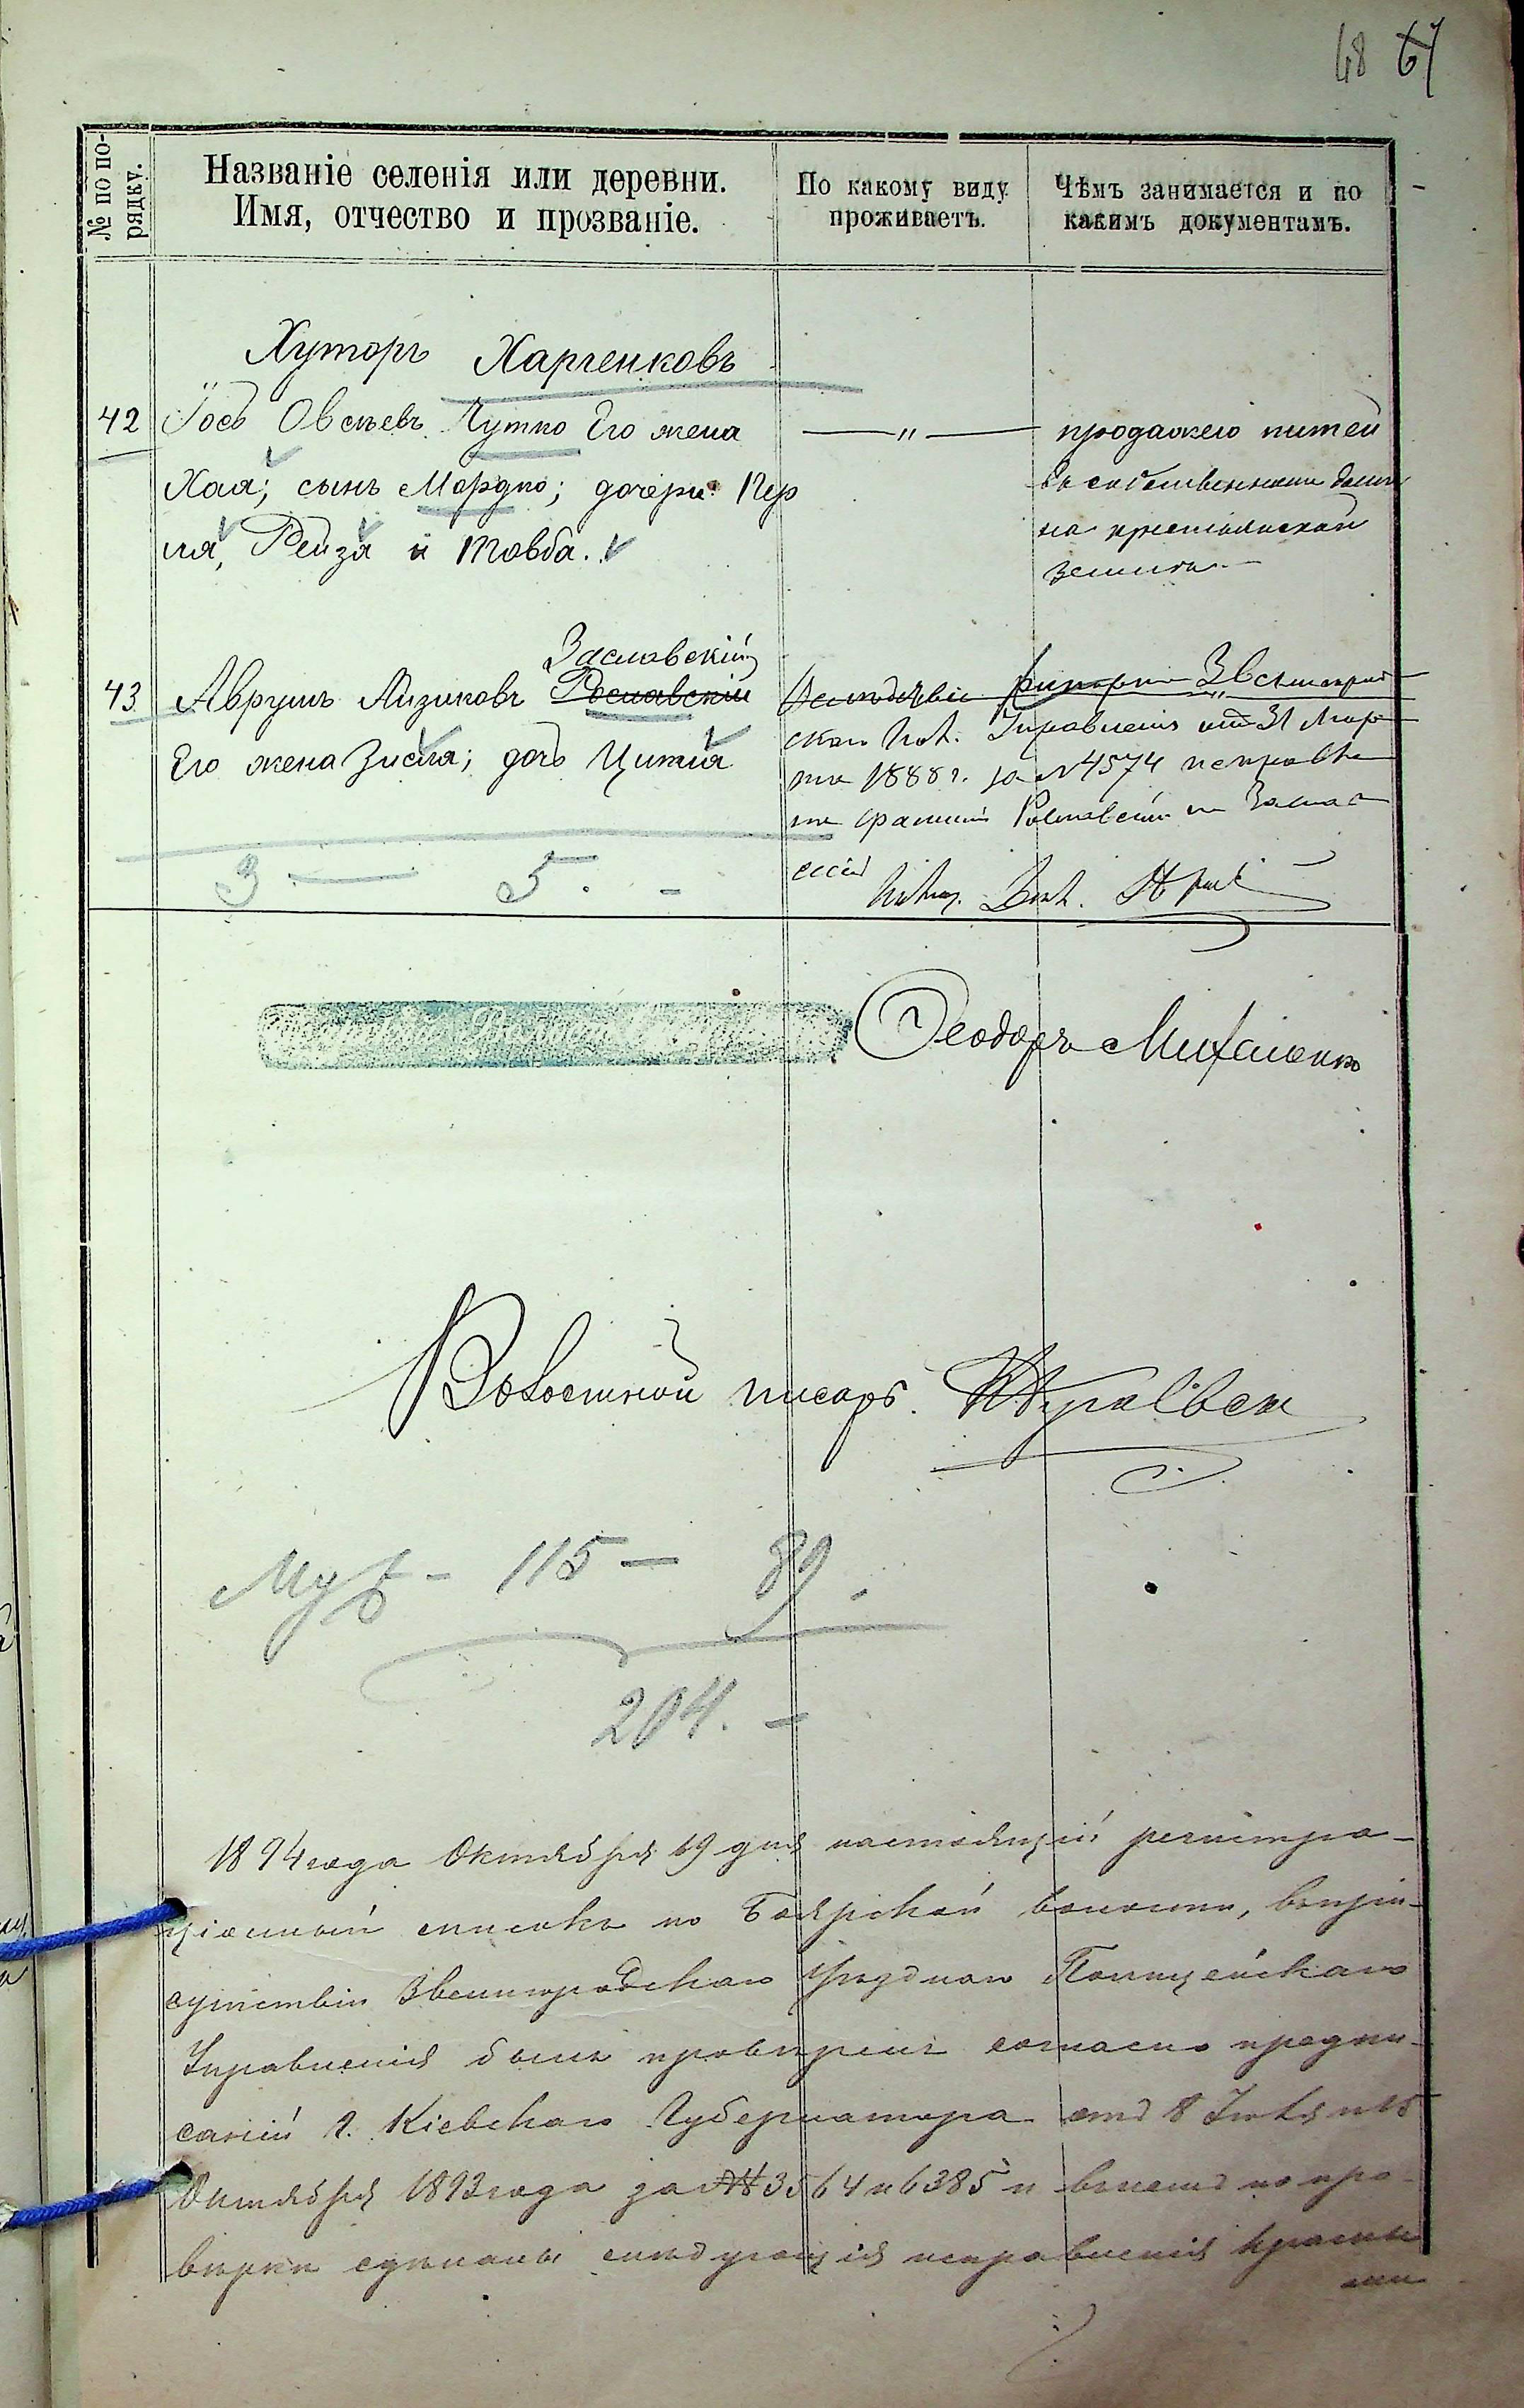 48 67
№ по по-
рядку.
Названіе селенія или деревни.
Имя, отчество и прозваніе.
По какому виду
проживаетъ.
Чѣмъ занимается и по
какимъ документамъ.
Хуторъ Харченковъ
42 Іось Овсѣевъ Чутко Его жена
Хая; сынъ Мордко; дочери: Пер
ля, Рейза и Товба.
— " —
продажею питей
въ собственномъ домѣ
на крестьянской
землѣ. —
Заславскій
43 Аврумъ Айзиковъ Рославскій
Его жена Зисля; дочь Цитля
Вслѣдствіе Звенигород
скаго Пол. Управленія отъ 31 Мар
та 1888 г. за № 4574 исправле
на фамилія Рославскій на Заслав
скій
3 — 5. -
Феодоръ Михаленко
Волостной писарь
Муж - 115 — 89.
204. -
1894 года Октября 19 дня настоящій регистра-
ціонный списокъ по Боярской волости, въ при-
сутствіи Звенигородскаго Уѣзднаго Полицейскаго
Управленія былъ провѣренъ согласно предпи-
саній г. Кіевскаго Губернатора отъ 8 Іюля и 15
Октября 1893 года за №№ 3564 и 6385 и вслѣдъ по про-
вѣркѣ сдѣланы слѣдующія исправленія красны
ми